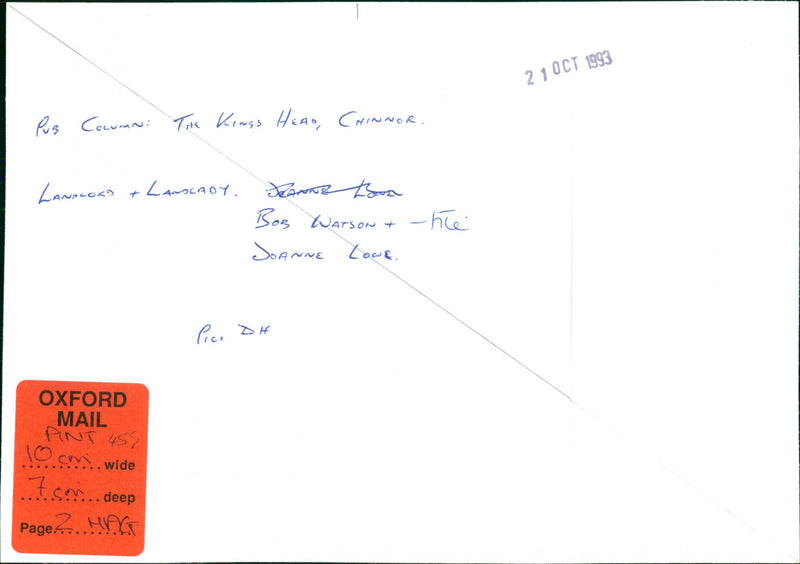 21 OCT 1993
PUB COLUMN: THE KINGS HEAD, CHINNOR.
LANDLORD + LANDLADY. JOANNE LOWE
BOB WATSON + — file
JOANNE LOWE.
PIC. DH
OXFORD
MAIL
PINT 459
10 cm wide
7 cm deep
Page 2 MAG